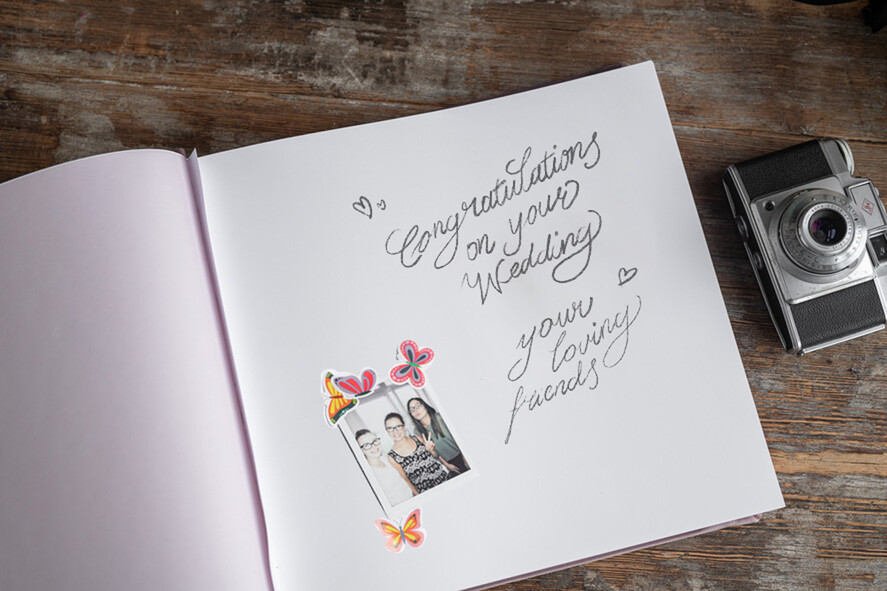 Congratulations
on your
Wedding
your
loving
friends